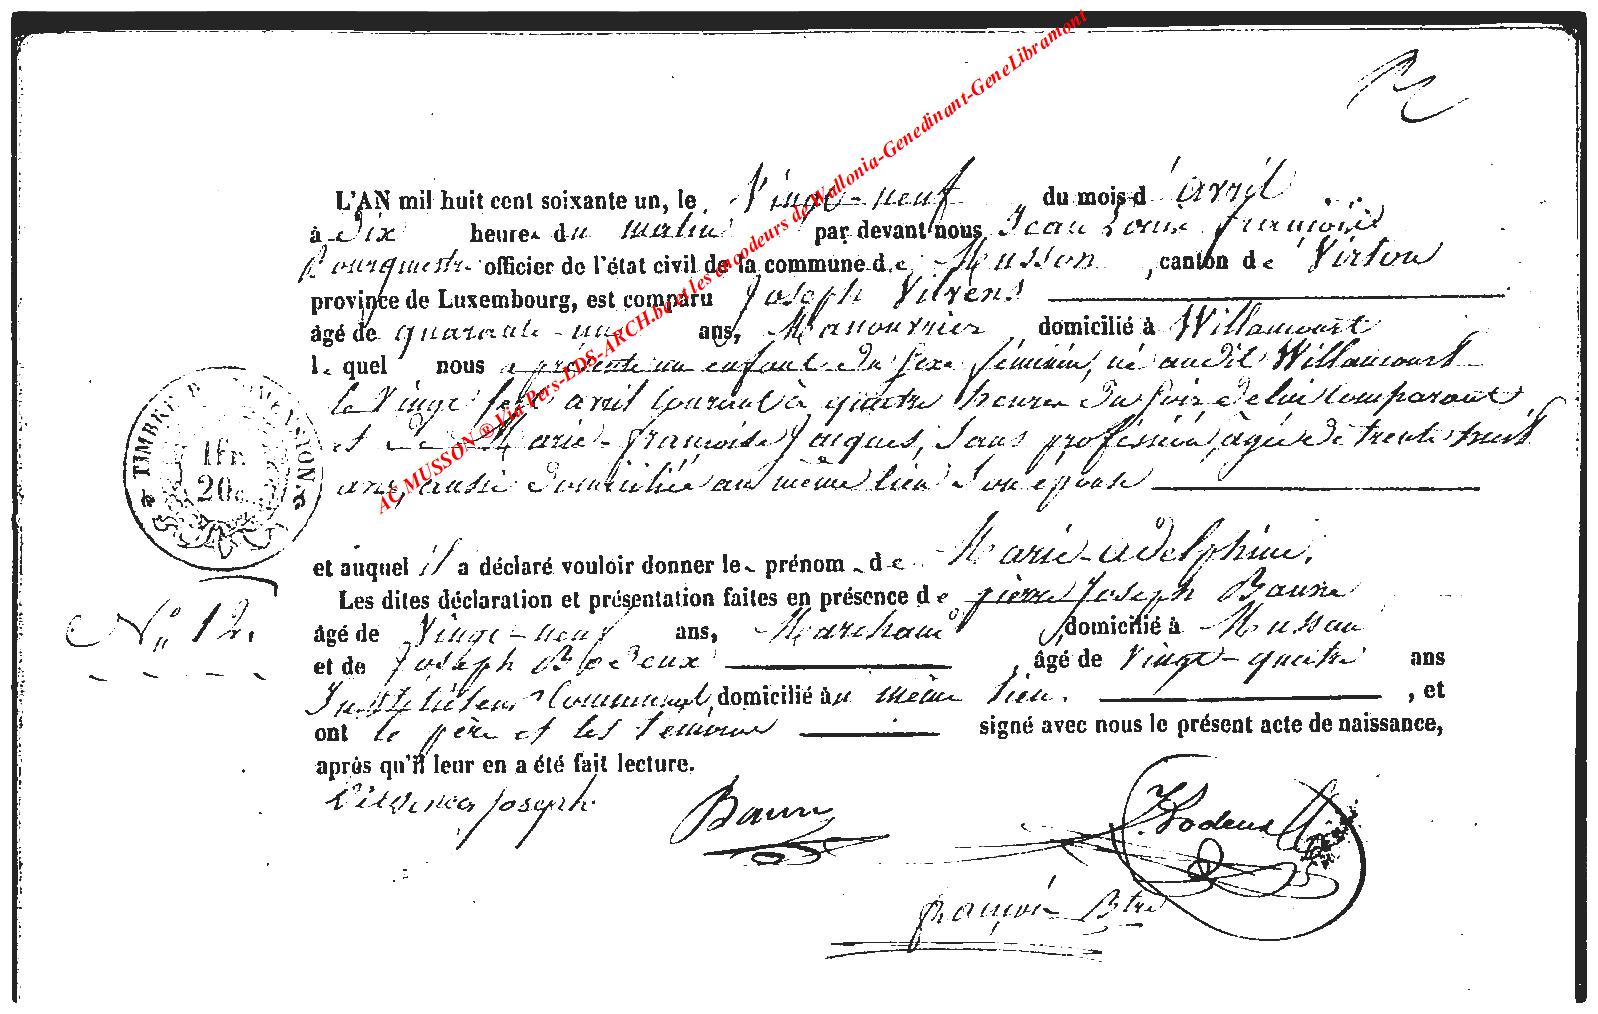 L'AN mil huit cent soixante un, le Vingt-neuf du mois d'avril
à Dix heures du matin par devant nous Jean Louis François
Bourgmestre officier de l'état civil de la commune de Musson, canton de Virton
province de Luxembourg, est comparu Joseph
âgé de quarante-un ans, Manouvrier domicilié à Willancourt
lequel nous a présenté un enfant du sexe féminin, né audit Willancourt
le Vingt sept avril courant à quatre heures du soir de lui comparant
et de Marie-françoise Jacques, sans profession, âgée de trente huit
ans, aussi domiciliée au même lieu son épouse
et auquel il a déclaré vouloir donner le prénom de Marie-adelphine.
Les dites déclaration et présentation faites en présence de pierre Joseph Baurr
âgé de Vingt-neuf ans, Marchand, domicilié à Musson
et de Joseph Bodeux, âgé de Vingt-quatre ans
Instituteur Communal, domicilié au même lieu, et
ont le père et les témoins signé avec nous le présent acte de naissance,
après qu'il leur en a été fait lecture.
Joseph
J. Bodeux
françois Btre
N° 12.
TIMBRE DE DIMENSION.
1 Fr.
20 c.
AC MUSSON ® Via Pers-LDS-ARCH.be et les encodeurs de Wallonia-Genedinant-GeneLibramont